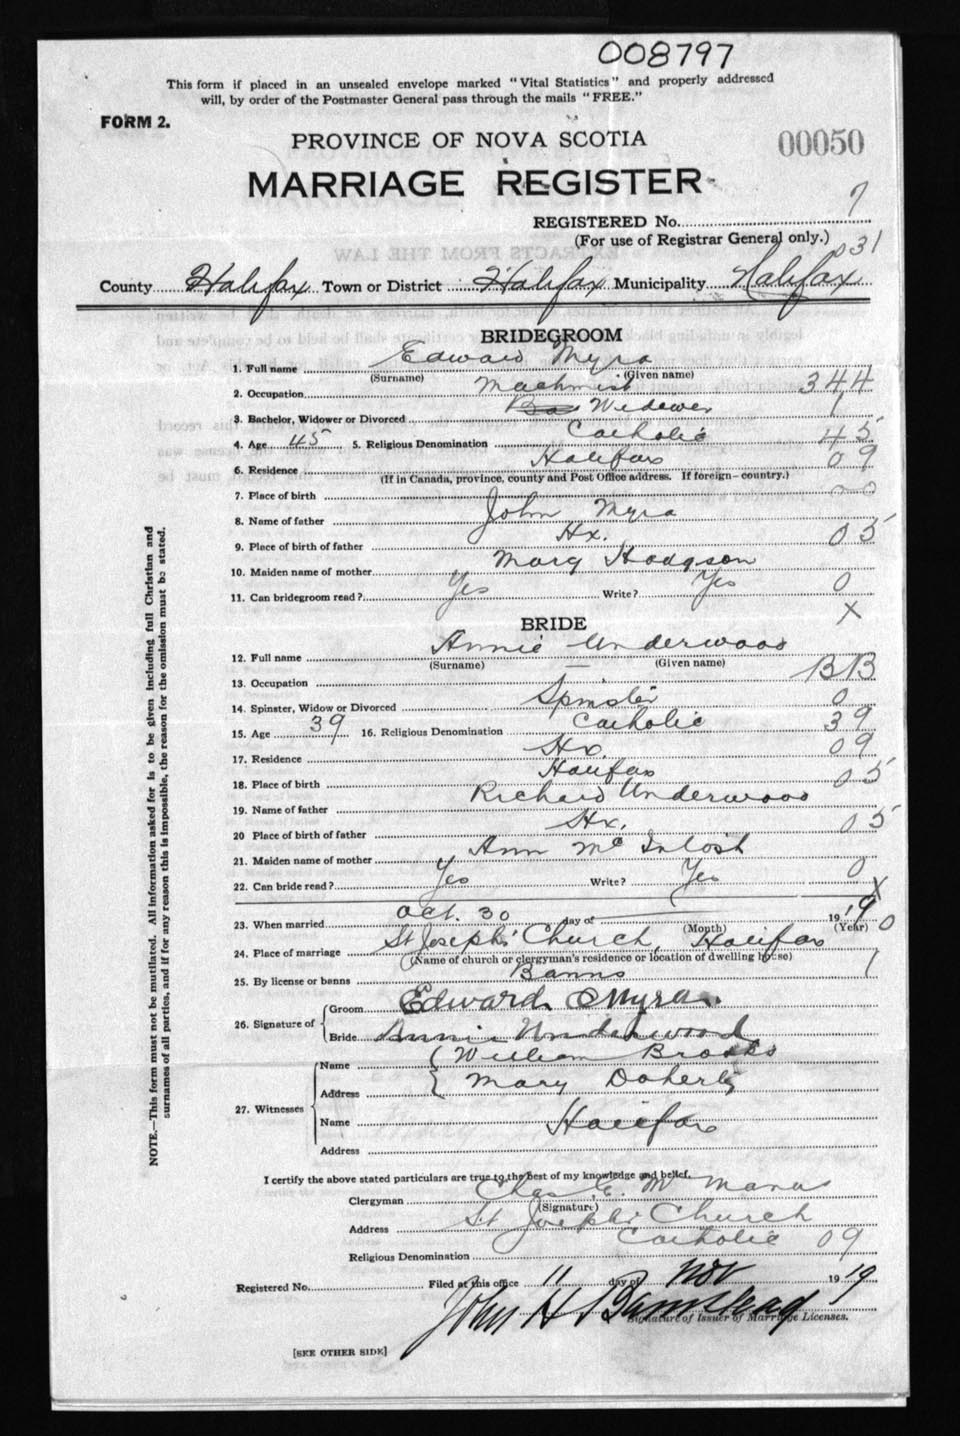 008797
This form if placed in an unsealed envelope marked "Vital Statistics" and properly addressed
will, by order of the Postmaster General pass through the mails "FREE."
FORM 2.
PROVINCE OF NOVA SCOTIA
00050
MARRIAGE REGISTER
REGISTERED No. 7
(For use of Registrar General only.)
031
County Halifax Town or District Halifax Municipality Halifax
BRIDEGROOM
1. Full name Edward Myra
(Surname) (Given name)
2. Occupation Machinist 344
3. Bachelor, Widower or Divorced Widower 1
4. Age 45 5. Religious Denomination Catholic 45
6. Residence Halifax 09
(If in Canada, province, county and Post Office address. If foreign—country.)
7. Place of birth 00
8. Name of father John Myra
9. Place of birth of father Hx. 05
10. Maiden name of mother Mary Hodgson
11. Can bridegroom read? Yes Write? Yes 0
X
BRIDE
12. Full name Annie Underwood
(Surname) (Given name)
13. Occupation — BB
14. Spinster, Widow or Divorced Spinster 0
15. Age 39 16. Religious Denomination Catholic 39
17. Residence Hx. 09
18. Place of birth Halifax 05
19. Name of father Richard Underwood
20 Place of birth of father Hx. 05
21. Maiden name of mother Ann McIntosh
22. Can bride read? Yes Write? Yes 0
X
23. When married Oct. 30 day of 1919
(Month) (Year) 0
24. Place of marriage St Joseph's Church, Halifax
(Name of church or clergyman's residence or location of dwelling house) 1
25. By license or banns Banns
26. Signature of Groom Edward Myra
Bride Annie Underwood
27. Witnesses Name William Brooks
Address Mary Doherty
Name Halifax
Address
I certify the above stated particulars are true to the best of my knowledge and belief.
Clergyman Chas E. Mc Manus
(Signature)
Address St Joseph's Church
Religious Denomination Catholic 09
Registered No. Filed at this office 11 day of Nov 1919
John H
Signature of Issuer of Marriage Licenses.
[SEE OTHER SIDE]
NOTE.—This form must not be mutilated. All information asked for is to be given including full Christian and
surnames of all parties, and if for any reason this is impossible, the reason for the omission must be stated.